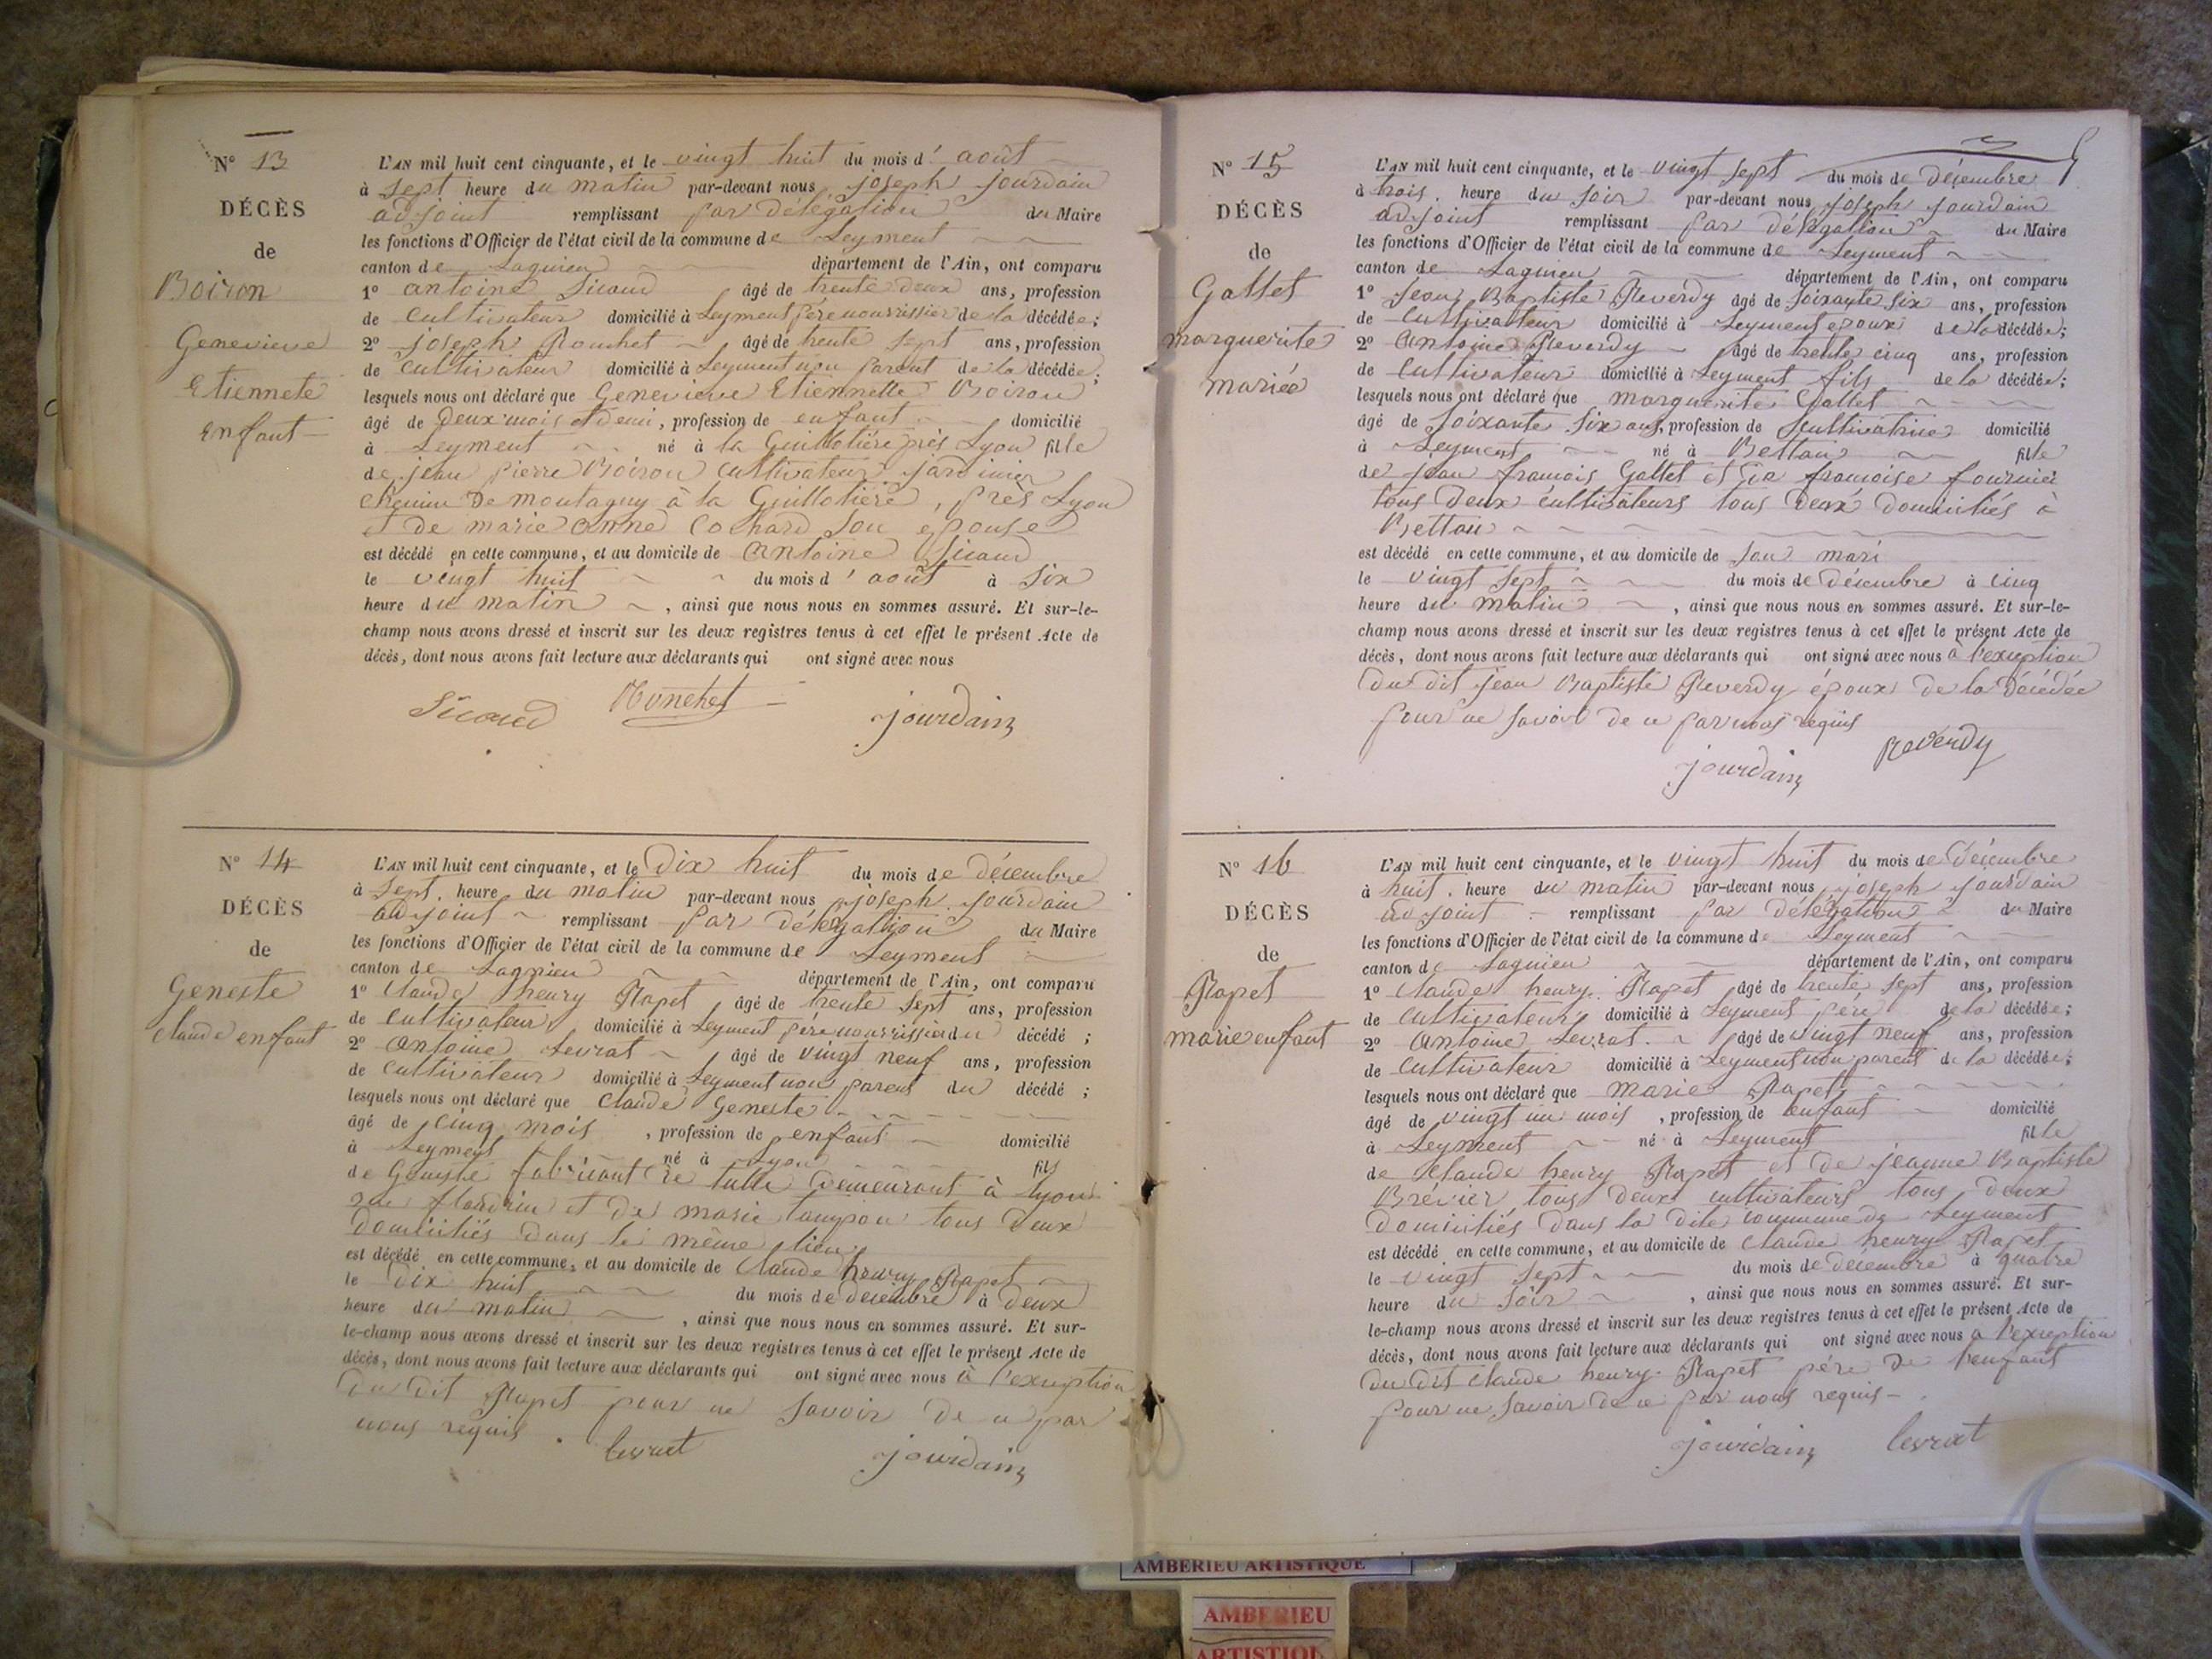 N° 13
DÉCÈS
de
Boiron
Genevieve
Etiennete
enfant
L'AN mil huit cent cinquante, et le vingt huit du mois d' août
à sept heure du matin par-devant nous joseph jourdain
adjoint remplissant par délégation du Maire
les fonctions d'Officier de l'état civil de la commune de Leyment
canton de Lagnieu département de l'Ain, ont comparu
1° antoine Sicaud âgé de trente deux ans, profession
de cultivateur domicilié à Leyment père nourrissier de la décédée;
2° joseph âgé de trente sept ans, profession
de cultivateur domicilié à Leyment non parent de la décédée;
lesquels nous ont déclaré que Genevieve Etiennette Boiron
âgé de deux mois et demi, profession de enfant domicilié
à Leyment né à la Guillotière près Lyon fille
de jean pierre Boiron cultivateur jardinier
chemin de montagny à la Guillotière, près Lyon
et de marie anne Cochard son epouse
est décédé en cette commune, et au domicile de Antoine Sicaud
le vingt huit du mois d' août à six
heure du matin, ainsi que nous nous en sommes assuré. Et sur-le-
champ nous avons dressé et inscrit sur les deux registres tenus à cet effet le présent Acte de
décès, dont nous avons fait lecture aux déclarants qui ont signé avec nous
Sicaud jourdain
N° 14
DÉCÈS
de
Geneste
claude enfant
L'AN mil huit cent cinquante, et le Dix huit du mois de décembre
à sept heure du matin par-devant nous joseph jourdain
adjoint remplissant par délégation du Maire
les fonctions d'Officier de l'état civil de la commune de Leyment
canton de Lagnieu département de l'Ain, ont comparu
1° Claude henry Rapet âgé de trente sept ans, profession
de cultivateur domicilié à Leyment père nourrissier du décédé ;
2° Antoine Levrat âgé de vingt neuf ans, profession
de cultivateur domicilié à Leyment non parent du décédé ;
lesquels nous ont déclaré que Claude Geneste
âgé de cinq mois, profession de enfant domicilié
à Leyment né à Lyon fils
de Geneste fabricant de tulle demeurant à Lyon
rue flandrin et de marie tous deux
domiciliés dans le même lieu
est décédé en cette commune, et au domicile de Claude henry Rapet
le dix huit du mois de decembre à deux
heure du matin, ainsi que nous nous en sommes assuré. Et sur-
le-champ nous avons dressé et inscrit sur les deux registres tenus à cet effet le présent Acte de
décès, dont nous avons fait lecture aux déclarants qui ont signé avec nous à l'exception
du dit Rapet pour ne savoir de ce par
nous requis
levrat jourdain
N° 15
DÉCÈS
de
Gallet
marguerite
mariée
L'AN mil huit cent cinquante, et le vingt sept du mois de décembre
à trois heure du soir par-devant nous joseph jourdain
adjoint remplissant par délégation du Maire
les fonctions d'Officier de l'état civil de la commune de Leyment
canton de Lagnieu département de l'Ain, ont comparu
1° Jean Baptiste Reverdy âgé de soixante six ans, profession
de cultivateur domicilié à Leyment epoux de la décédée;
2° Antoine Reverdy âgé de trente cinq ans, profession
de cultivateur domicilié à Leyment fils de la décédée;
lesquels nous ont déclaré que marguerite Gallet
âgé de soixante six ans, profession de cultivatrice domicilié
à Leyment né à Bettan fille
de jean francois Gallet et de francoise fournier
tous deux cultivateurs tous deux domiciliés à
Bettan
est décédé en cette commune, et au domicile de son mari
le vingt sept du mois de décembre à cinq
heure du matin, ainsi que nous nous en sommes assuré. Et sur-le-
champ nous avons dressé et inscrit sur les deux registres tenus à cet effet le présent Acte de
décès, dont nous avons fait lecture aux déclarants qui ont signé avec nous à l'exception
du dit jean Baptiste Reverdy époux de la décédée
pour ne savoir de ce par nous requis
jourdain Reverdy
N° 16
DÉCÈS
de
Rapet
marie enfant
L'AN mil huit cent cinquante, et le vingt huit du mois de décembre
à huit heure du matin par-devant nous joseph jourdain
adjoint remplissant par délégation du Maire
les fonctions d'Officier de l'état civil de la commune de Leyment
canton de Lagnieu département de l'Ain, ont comparu
1° Claude henry Rapet âgé de trente sept ans, profession
de cultivateur domicilié à Leyment père de la décédée;
2° Antoine Levrat âgé de vingt neuf ans, profession
de cultivateur domicilié à Leyment non parent de la décédée;
lesquels nous ont déclaré que marie Rapet
âgé de vingt un mois, profession de enfant domicilié
à Leyment né à Leyment fille
de Claude henry Rapet et de jeanne Baptiste
Brévier tous deux cultivateurs tous deux
domiciliés dans la dite commune de Leyment
est décédé en cette commune, et au domicile de Claude henry Rapet
le vingt sept du mois de décembre à quatre
heure du soir, ainsi que nous nous en sommes assuré. Et sur-
le-champ nous avons dressé et inscrit sur les deux registres tenus à cet effet le présent Acte de
décès, dont nous avons fait lecture aux déclarants qui ont signé avec nous a l'exception
du dit Claude henry Rapet père de l'enfant
pour ne savoir de ce par nous requis
jourdain levrat
AMBERIEU ARTISTIQUE
AMBERIEU